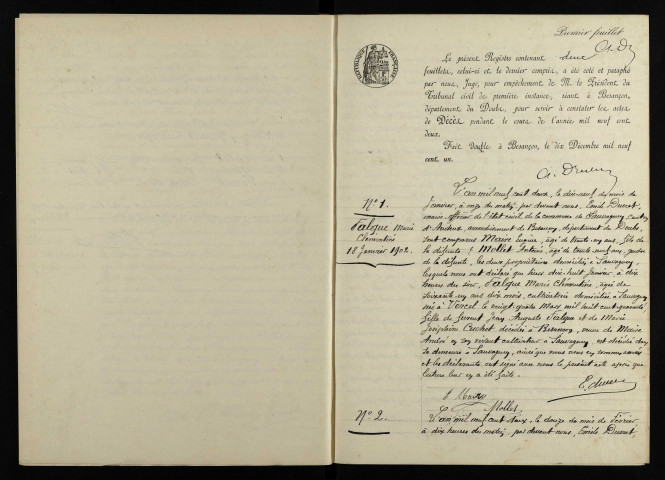 Premier feuillet
Le présent Registre contenant deux
feuillets, celui-ci et le dernier compris, a été coté et paraphé
par nous, Juge, pour empêchement de M. le Président du
Tribunal civil de première instance, séant à Besançon,
département du Doubs, pour servir à constater les actes
de Décès pendant le cours de l'année mil neuf cent
deux.
Fait double à Besançon, le dix Décembre mil neuf
cent un.
N° 1.
Falque Marie
Clémentine
18 Janvier 1902.
L'an mil neuf cent deux, le dix-neuf du mois de
Janvier, à onze du matin, par devant nous, Emile Ducrot
maire officier de l'état civil de la commune de Sauvagney, canton
d'Audeux, arrondissement de Besançon, département du Doubs,
sont comparus Maire Eugène, âgé de trente-un ans, fils de
la défunte & Mollet, âgé de trente-neuf ans, gendre
de la défunte, les deux propriétaires domiciliés à Sauvagney,
lesquels nous ont déclaré que hier dix-huit Janvier à dix
heures du soir, Falque Marie Clémentine, âgée de
soixante-un ans dix mois, cultivatrice domiciliée à Sauvagney
née à Vercel le vingt-quatre Mars mil huit cent quarante,
fille de furent Jean Auguste Falque et de Marie
Joséphine Cuchot décédés à Besançon, veuve de Maire
André en son vivant cultivateur à Sauvagney, est décédée dans
sa demeure à Sauvagney, ainsi que nous nous en sommes assurés
et les déclarants ont signé avec nous le présent acte après que
lecture leur en a été faite.
E. Maire
Mollet
N° 2.
L'an mil neuf cent deux, le douze du mois de Février,
à dix heures du matin, par devant nous, Emile Ducrot,